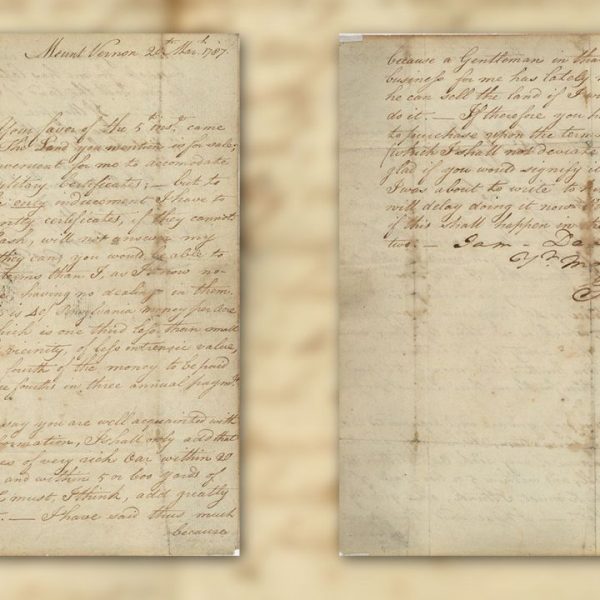 Mount Vernon 20th Mar.h 1787
Your favor of the 5th inst. came
The Land you mention is for sale;
convenient for me to accomodate
Military Certificates; — but to
only inducement I have to
certificates, if they cannot
Cash, will not answer my
they can, you would be able to
terms than I, as I now no-
having no dealings in them.
is 40/ Pensylvania money per Acre
which is one third less than small
vicinity, of less intrensic value,
fourth of the money to be paid
fourths in three annual paymts
say you are well acquainted with
formation, I shall only add that
of very rich Oar within 20
and within 5 or 600 yards of
must, I think, add greatly
— I have said thus much
because
because a Gentleman in that
business for me has lately
he can sell the land if I
do it. — If therefore you
to purchase upon the terms
(which I shall not deviate
glad if you would signify it
I was about to write to
will delay doing it now
if this shall happen in
two. — I am — De
Yr Mo